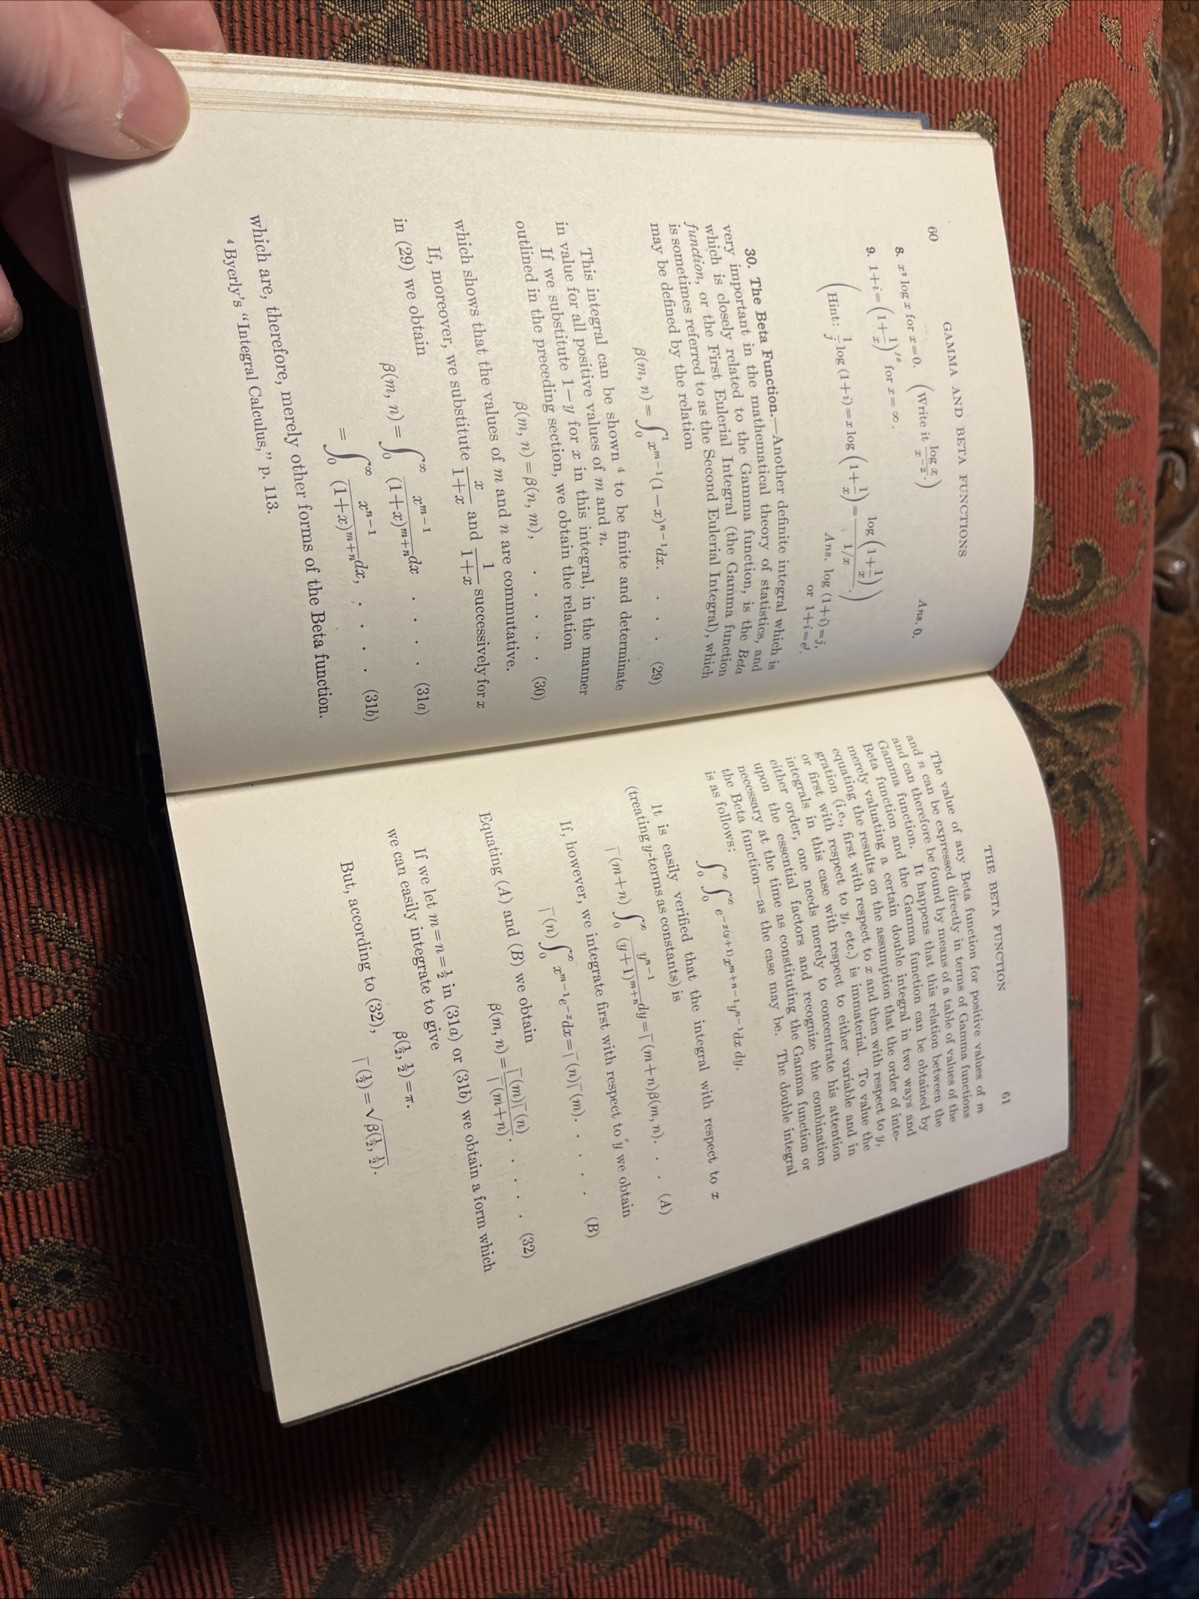 60
GAMMA AND BETA FUNCTIONS
8. x² log x for x=0. (Write it log x / x⁻².) Ans. 0.
9. 1+i=(1+1/x)^{jx} for x=∞.
(Hint: 1/j log (1+i)=x log (1+1/x)=log (1+1/x) / 1/x.)
Ans. log (1+i)=j,
or 1+i=eʲ.
30. The Beta Function.—Another definite integral which is
very important in the mathematical theory of statistics, and
which is closely related to the Gamma function, is the Beta
function, or the First Eulerial Integral (the Gamma function
is sometimes referred to as the Second Eulerial Integral), which
may be defined by the relation
β(m, n)=∫₀¹ x^{m−1}(1−x)^{n−1}dx. . . . (29)
This integral can be shown⁴ to be finite and determinate
in value for all positive values of m and n.
If we substitute 1−y for x in this integral, in the manner
outlined in the preceding section, we obtain the relation
β(m, n)=β(n, m), . . . . . (30)
which shows that the values of m and n are commutative.
If, moreover, we substitute x/(1+x) and 1/(1+x) successively for x
in (29) we obtain
β(m, n)=∫₀^∞ x^{m−1}/(1+x)^{m+n} dx . . . . (31a)
=∫₀^∞ x^{n−1}/(1+x)^{m+n} dx, . . . . (31b)
which are, therefore, merely other forms of the Beta function.
⁴ Byerly's "Integral Calculus," p. 113.
THE BETA FUNCTION
61
The value of any Beta function for positive values of m
and n can be expressed directly in terms of Gamma functions
and can therefore be found by means of a table of values of the
Gamma function. It happens that this relation between the
Beta function and the Gamma function can be obtained by
merely valuating a certain double integral in two ways and
equating the results on the assumption that the order of inte-
gration (i.e., first with respect to x and then with respect to y,
or first with respect to y, etc.) is immaterial. To value the
integrals in this case with respect to either variable and in
either order, one needs merely to concentrate his attention
upon the essential factors and recognize the combination
necessary at the time as constituting the Gamma function or
the Beta function—as the case may be. The double integral
is as follows:
∫₀^∞ ∫₀^∞ e^{−x(y+1)}x^{m+n−1}y^{n−1}dx dy.
It is easily verified that the integral with respect to x
(treating y-terms as constants) is
Γ(m+n)∫₀^∞ y^{n−1}/(y+1)^{m+n} dy=Γ(m+n)β(m, n). . . (A)
If, however, we integrate first with respect to y we obtain
Γ(n)∫₀^∞ x^{m−1}e^{−x}dx=Γ(n)Γ(m). . . . . (B)
Equating (A) and (B) we obtain
β(m, n)=Γ(m)Γ(n)/Γ(m+n). . . . . (32)
If we let m=n=½ in (31a) or (31b) we obtain a form which
we can easily integrate to give
β(½, ½)=π.
But, according to (32), Γ(½)=√β(½, ½).